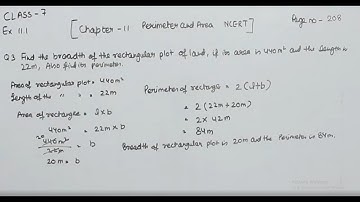 CLASS-7
Ex 11.1
[Chapter-11 Perimeter and Area NCERT]
Page no- 208
Q3 Find the breadth of the rectangular plot of land, if its area is 440m² and the length is
22m, Also find its perimeter.
Area of rectangular plot = 440m²
Length of the " " = 22m
Area of rectangle = l×b
440m² = 22m × b
20
440m²/22m = b
20m = b
Perimeter of rectangle = 2(l+b)
= 2(22m+20m)
= 2× 42m
= 84m
Breadth of rectangular plot is 20m and the Perimeter is 84m.